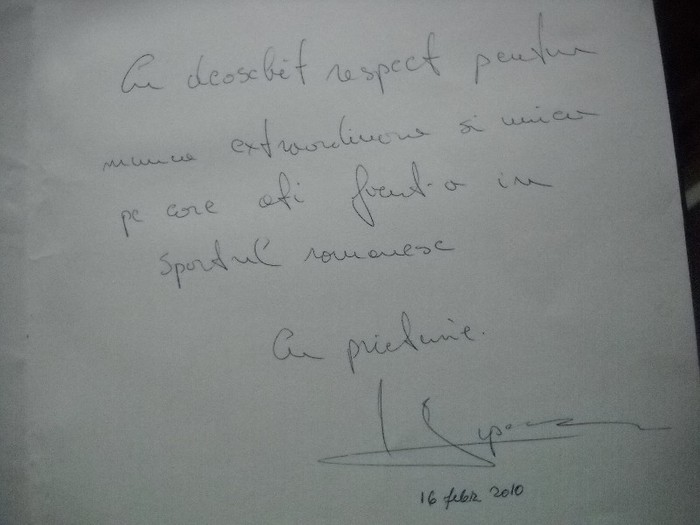 Cu deosebit respect pentru
munca extraordinara si unica
pe care ati facut-o in
sportul romanesc
Cu prietenie.
16 febr 2010